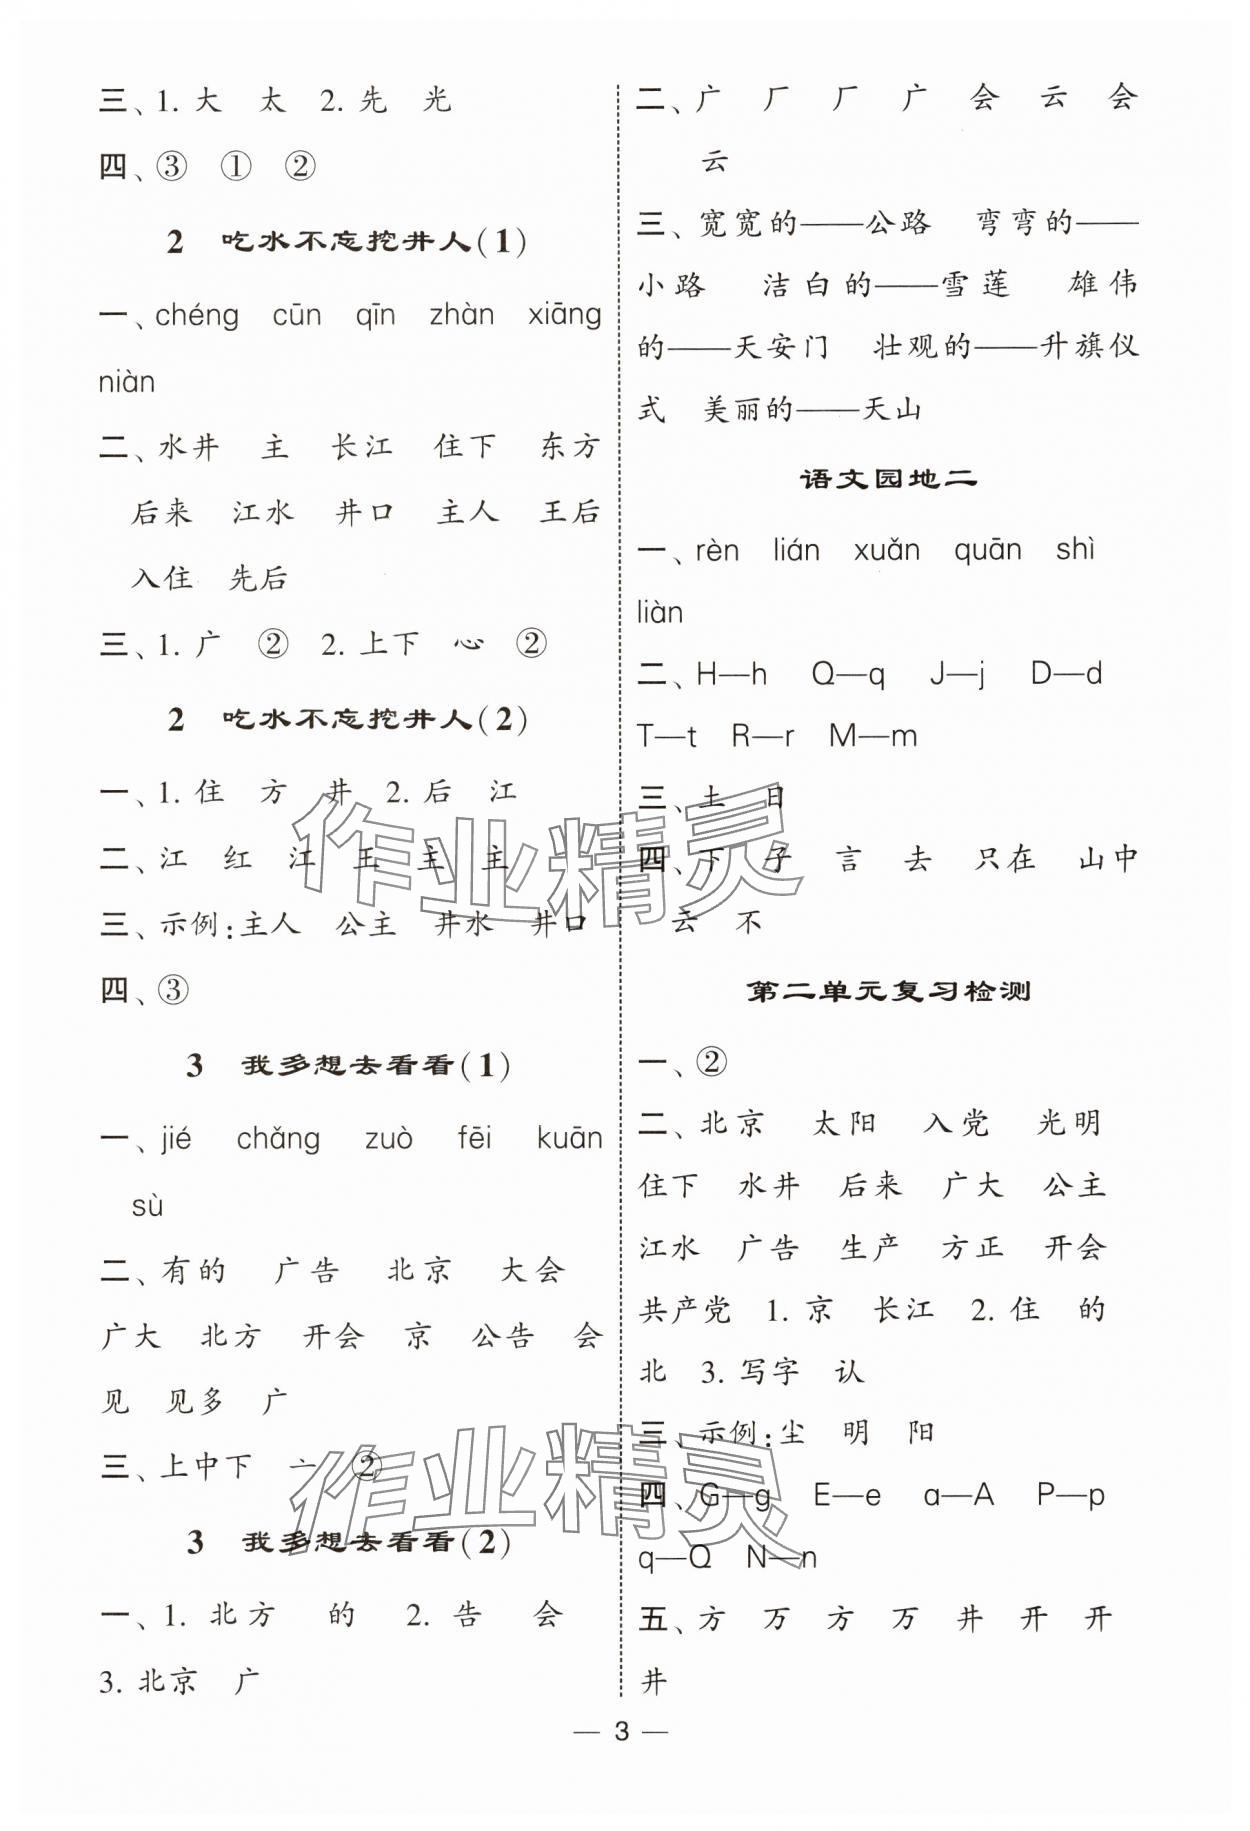 三、1. 大 太 2. 先 光
四、③ ① ②
2 吃水不忘挖井人(1)
一、chéng cūn qīn zhàn xiāng
niàn
二、水井 主 长江 住下 东方
后来 江水 井口 主人 王后
入住 先后
三、1. 广 ② 2. 上下 心 ②
2 吃水不忘挖井人(2)
一、1. 住 方 井 2. 后 江
二、江 红 江 王 主 主
三、示例:主人 公主 井水 井口
四、③
3 我多想去看看(1)
一、jié chǎng zuò fēi kuān
sù
二、有的 广告 北京 大会
广大 北方 开会 京 公告 会
见 见多 广
三、上中下 亠 ②
3 我多想去看看(2)
一、1. 北方 的 2. 告 会
3. 北京 广
二、广 厂 厂 广 会 云 会
云
三、宽宽的——公路 弯弯的——
小路 洁白的——雪莲 雄伟
的——天安门 壮观的——升旗仪
式 美丽的——天山
语文园地二
一、rèn lián xuǎn quān shì
liàn
二、H—h Q—q J—j D—d
T—t R—r M—m
三、土 日
四、下 子 言 去 只在 山中
云 不
第二单元复习检测
一、②
二、北京 太阳 入党 光明
住下 水井 后来 广大 公主
江水 广告 生产 方正 开会
共产党 1. 京 长江 2. 住 的
北 3. 写字 认
三、示例:尘 明 阳
四、G—g E—e a—A P—p
q—Q N—n
五、方 万 方 万 井 开 开
井
— 3 —
作业精灵
作业精灵